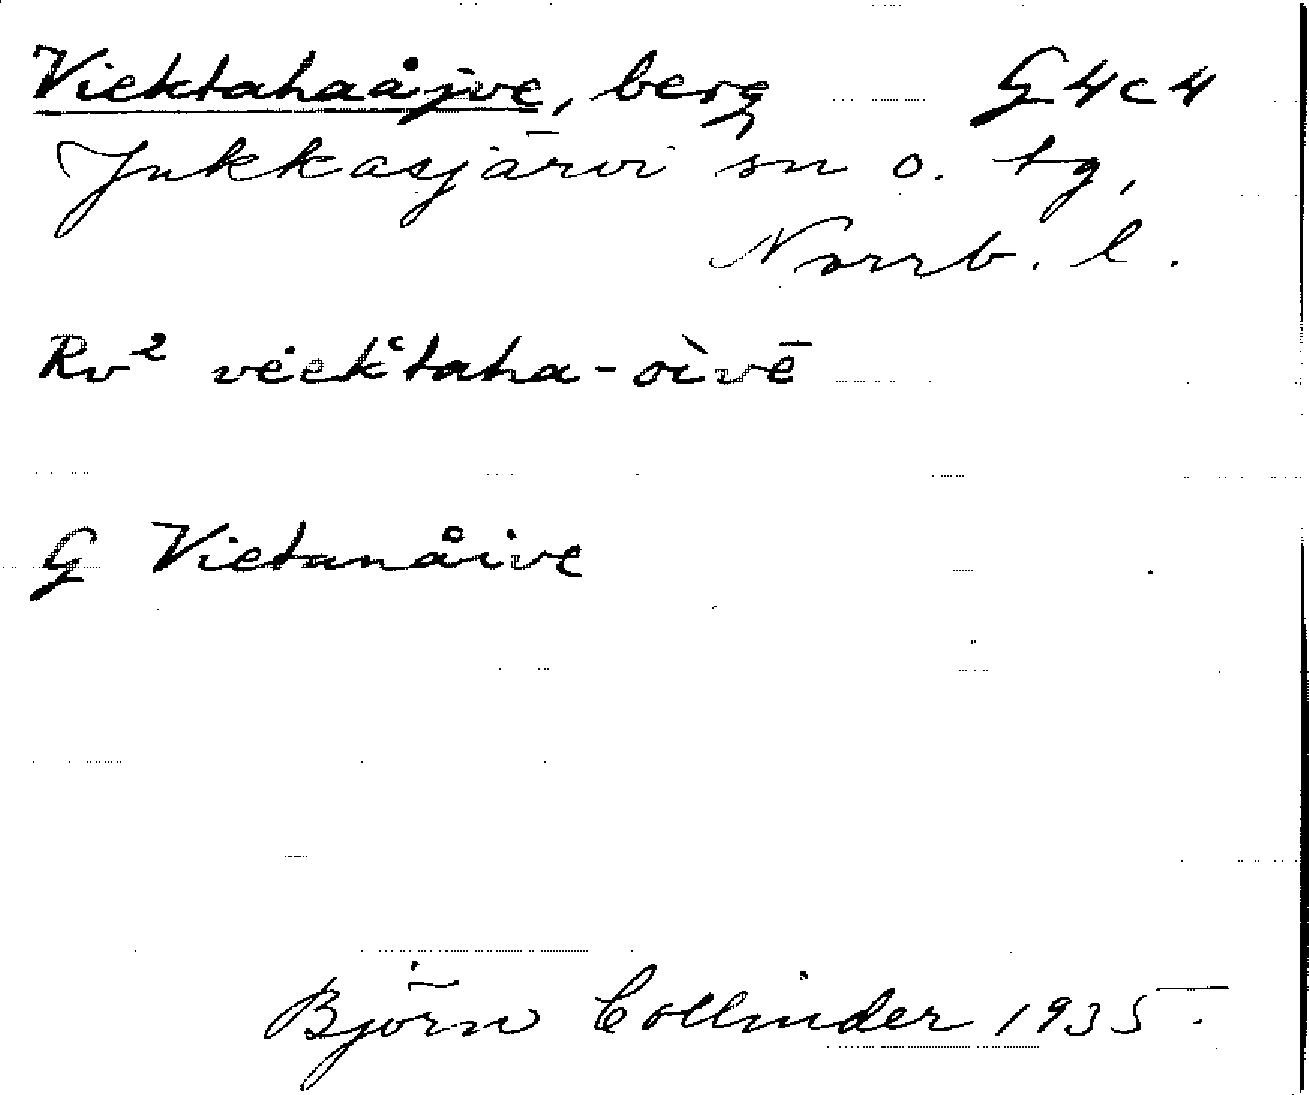 Viektahaåjve, berg G4c4
Jukkasjärvi sn o. tg,
Norrb. l.
Rv² vėekʿtaha-oìvē
G Vietanåive
Björn Collinder 1935.